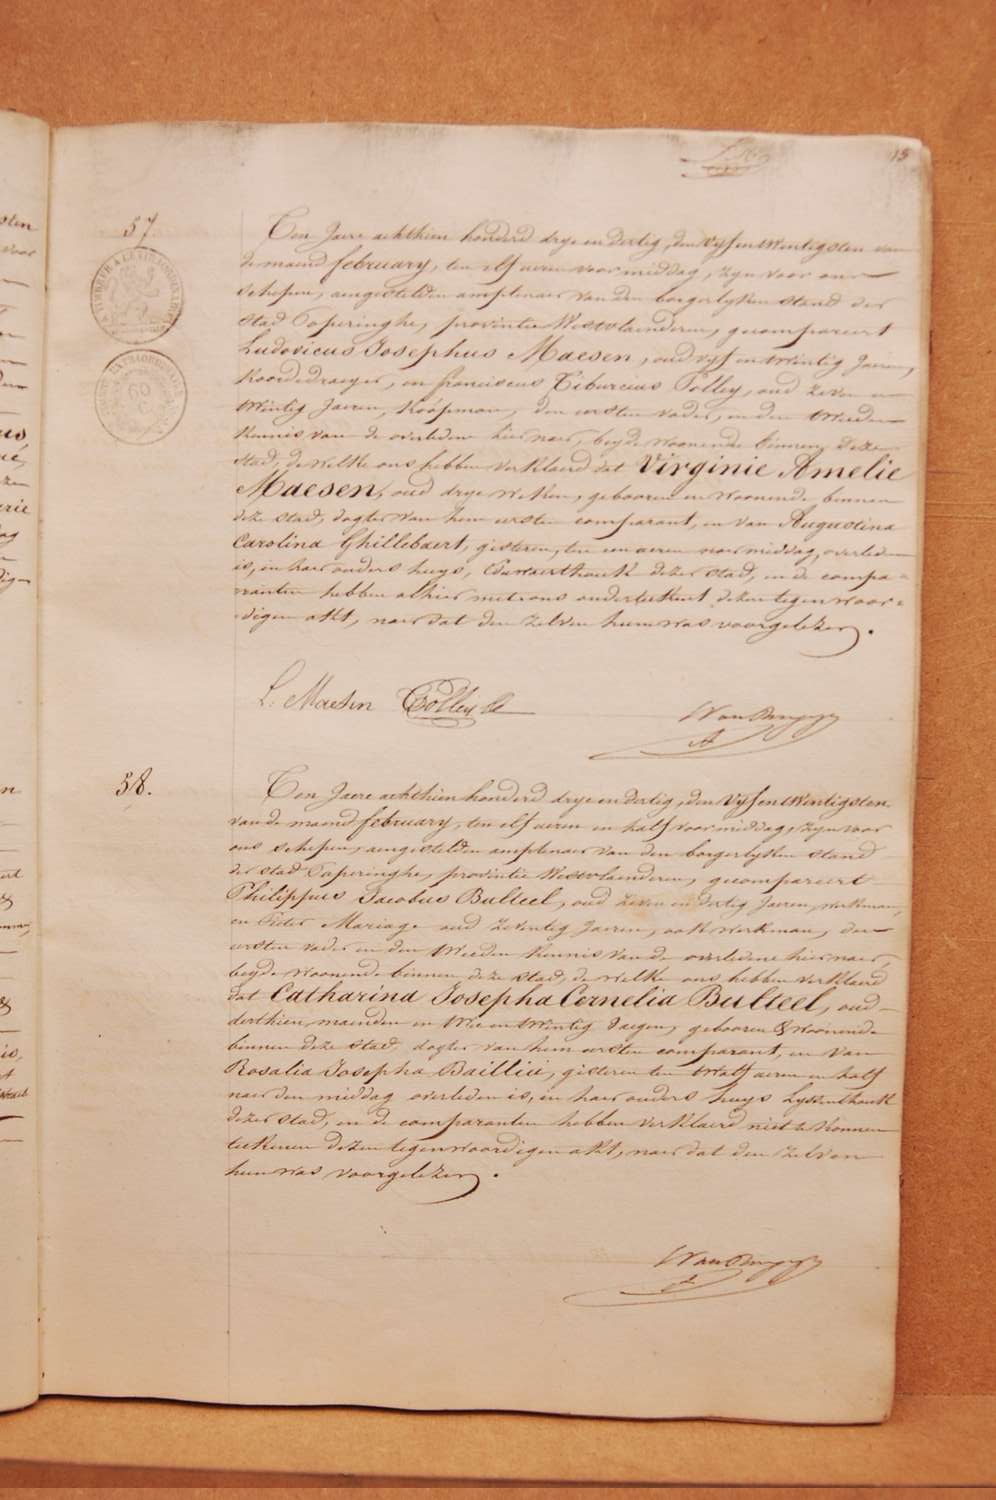 15
57
Ten Jaere achthien honderd drye en dertig, den vyf en twintigsten van
de maend february, ten elf uren voor middag, zyn voor ons
schepen, aengestelden amptenaer van den borgerlyken stand der
stad Poperinghe, provintie Westvlaenderen, gecompareert
Ludovicus Josephus Maesen, oud vyf en twintig Jaeren,
Koordedraeyer, en franciscus Tiburcius Tolley, oud zeven en
twintig Jaeren, Koopman, den eersten vader, en den tweeden
kennis van de overledene hier naer, beyde woonende binnen deze
stad, de welke ons hebben verklaerd dat Virginie Amelie
Maesen, oud drye weken, gebooren en woonende binnen
deze stad, dogter van hem eersten comparant, en van Augustina
Carolina Ghillebaert, gisteren, ten een uren naer middag, overleden
is, in haer ouders huys, dezer stad, en de compa-
ranten hebben alhier met ons onderteekent dezen tegenwoor-
digen akt, naer dat den zelven hun was voorgelezen.
L. Maesen Tolley
58.
Ten Jaere achthien honderd drye en dertig, den vyf en twintigsten
van de maend february, ten elf uren en half voor middag, zyn voor
ons schepen, aengestelden amptenaer van den borgerlyken stand
der stad Poperinghe, provintie Westvlaenderen, gecompareert
Philippus Jacobus Bulteel, oud zeven en dertig Jaeren, werkman,
en Pieter Mariage oud zeventig Jaeren, ook werkman, den
eersten vader en den tweeden kennis van de overledene hier naer,
beyde woonende binnen deze stad, de welke ons hebben verklaerd
dat Catharina Josepha Cornelia Bulteel, oud
derthien maenden en twee en twintig dagen, gebooren & woonende
binnen deze stad, dogter van hem eersten comparant, en van
Rosalia Josepha Baillie, gisteren ten twalf uren en half
naer den middag overleden is, in haer ouders huys
dezer stad, en de comparanten hebben verklaerd niet te konnen
teekenen dezen tegenwoordigen akt, naer dat den zelven
hun was voorgelezen.